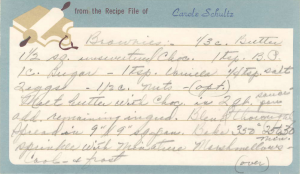 from the Recipe File of Carole Schultz
Brownies - 1/3 c. Butter
1 1/2 sq. unsweetened Choc. 1 tsp. B.P.
1 c. Sugar - 1 tsp. Vanilla 1/4 tsp. salt
2 eggs - 1/2 c. nuts - (opt.)
Melt butter with Choc. in 2 qt. sauce pan
add remaining ingred. Blend
Spread in 9" x 9" sq. pan. Bake 350° 25-30 min
sprinkle with Miniature Marshmallows -
Cool & frost
(over)